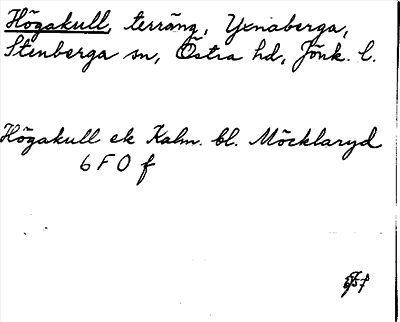 Högakull, terräng, Yxnaberga,
Stenberga sn, Östra hd, Jönk. l.
Högakull ek Kalm. bl. Möcklaryd
6 F 0 f